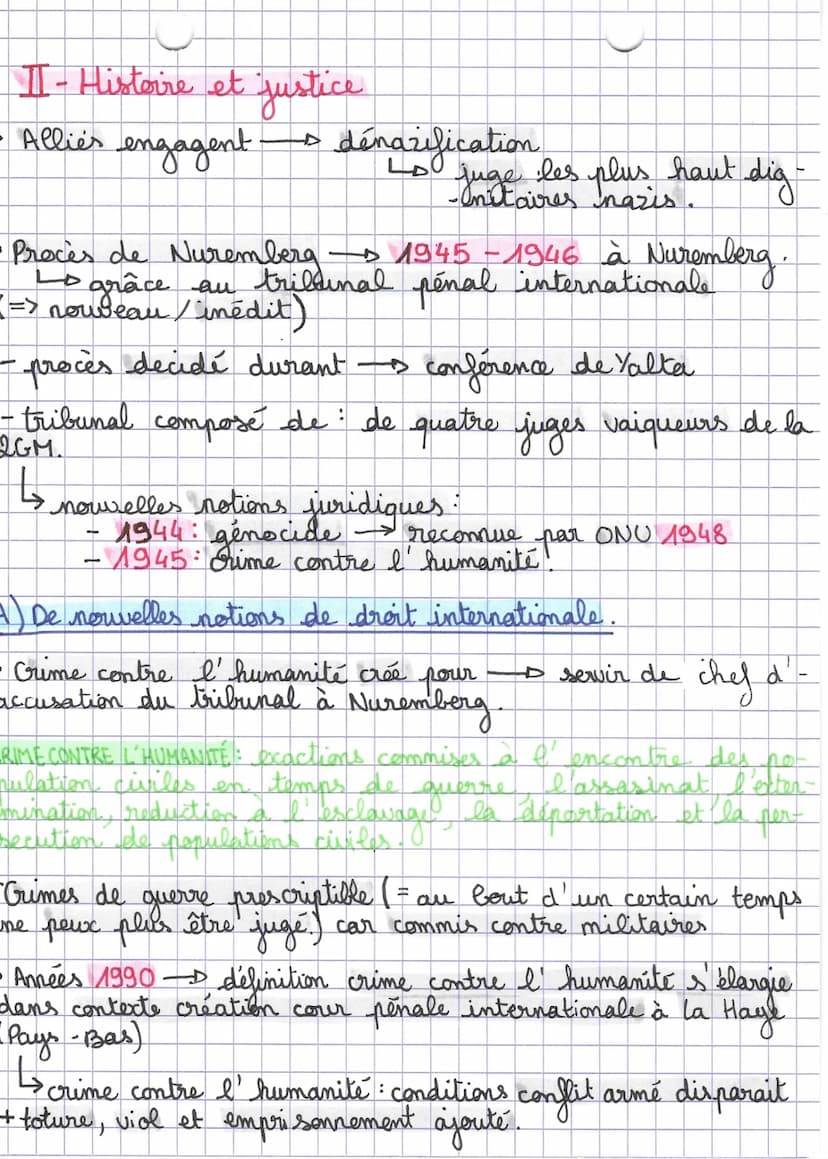 II - Histoire et justice
· Alliés engagent → dénazification
↳ juge les plus haut dig-
-nitaires nazis.
· Procès de Nuremberg → 1945 - 1946 à Nuremberg.
↳ grâce au tribunal pénal internationale
(=> nouveau / inédit)
- procès decidé durant → conférence de Yalta
- tribunal composé de : de quatre juges vaiqueurs de la
2GM.
↳ nouvelles notions juridiques :
- 1944 : génocide → reconnue par ONU 1948
- 1945 : crime contre l'humanité !
A) De nouvelles notions de droit internationale.
· Crime contre l'humanité créé pour → servir de chef d'-
accusation du tribunal à Nuremberg.
RIME CONTRE L'HUMANITÉ : exactions commises à l'encontre des po-
pulation civiles en temps de guerre, l'assasinat, l'exter-
mination, reduction à l'esclavage, la déportation et la per-
secution de populations civiles.
Crimes de guerre prescriptible (= au bout d'un certain temps
ne peux plus être jugé) car commis contre militaires
· Années 1990 → définition crime contre l'humanité s'élargie
dans contexte création cour pénale internationale à La Haye
(Pays - Bas)
↳ crime contre l'humanité : conditions conflit armé disparait
+ toture, viol et emprisonnement ajouté.